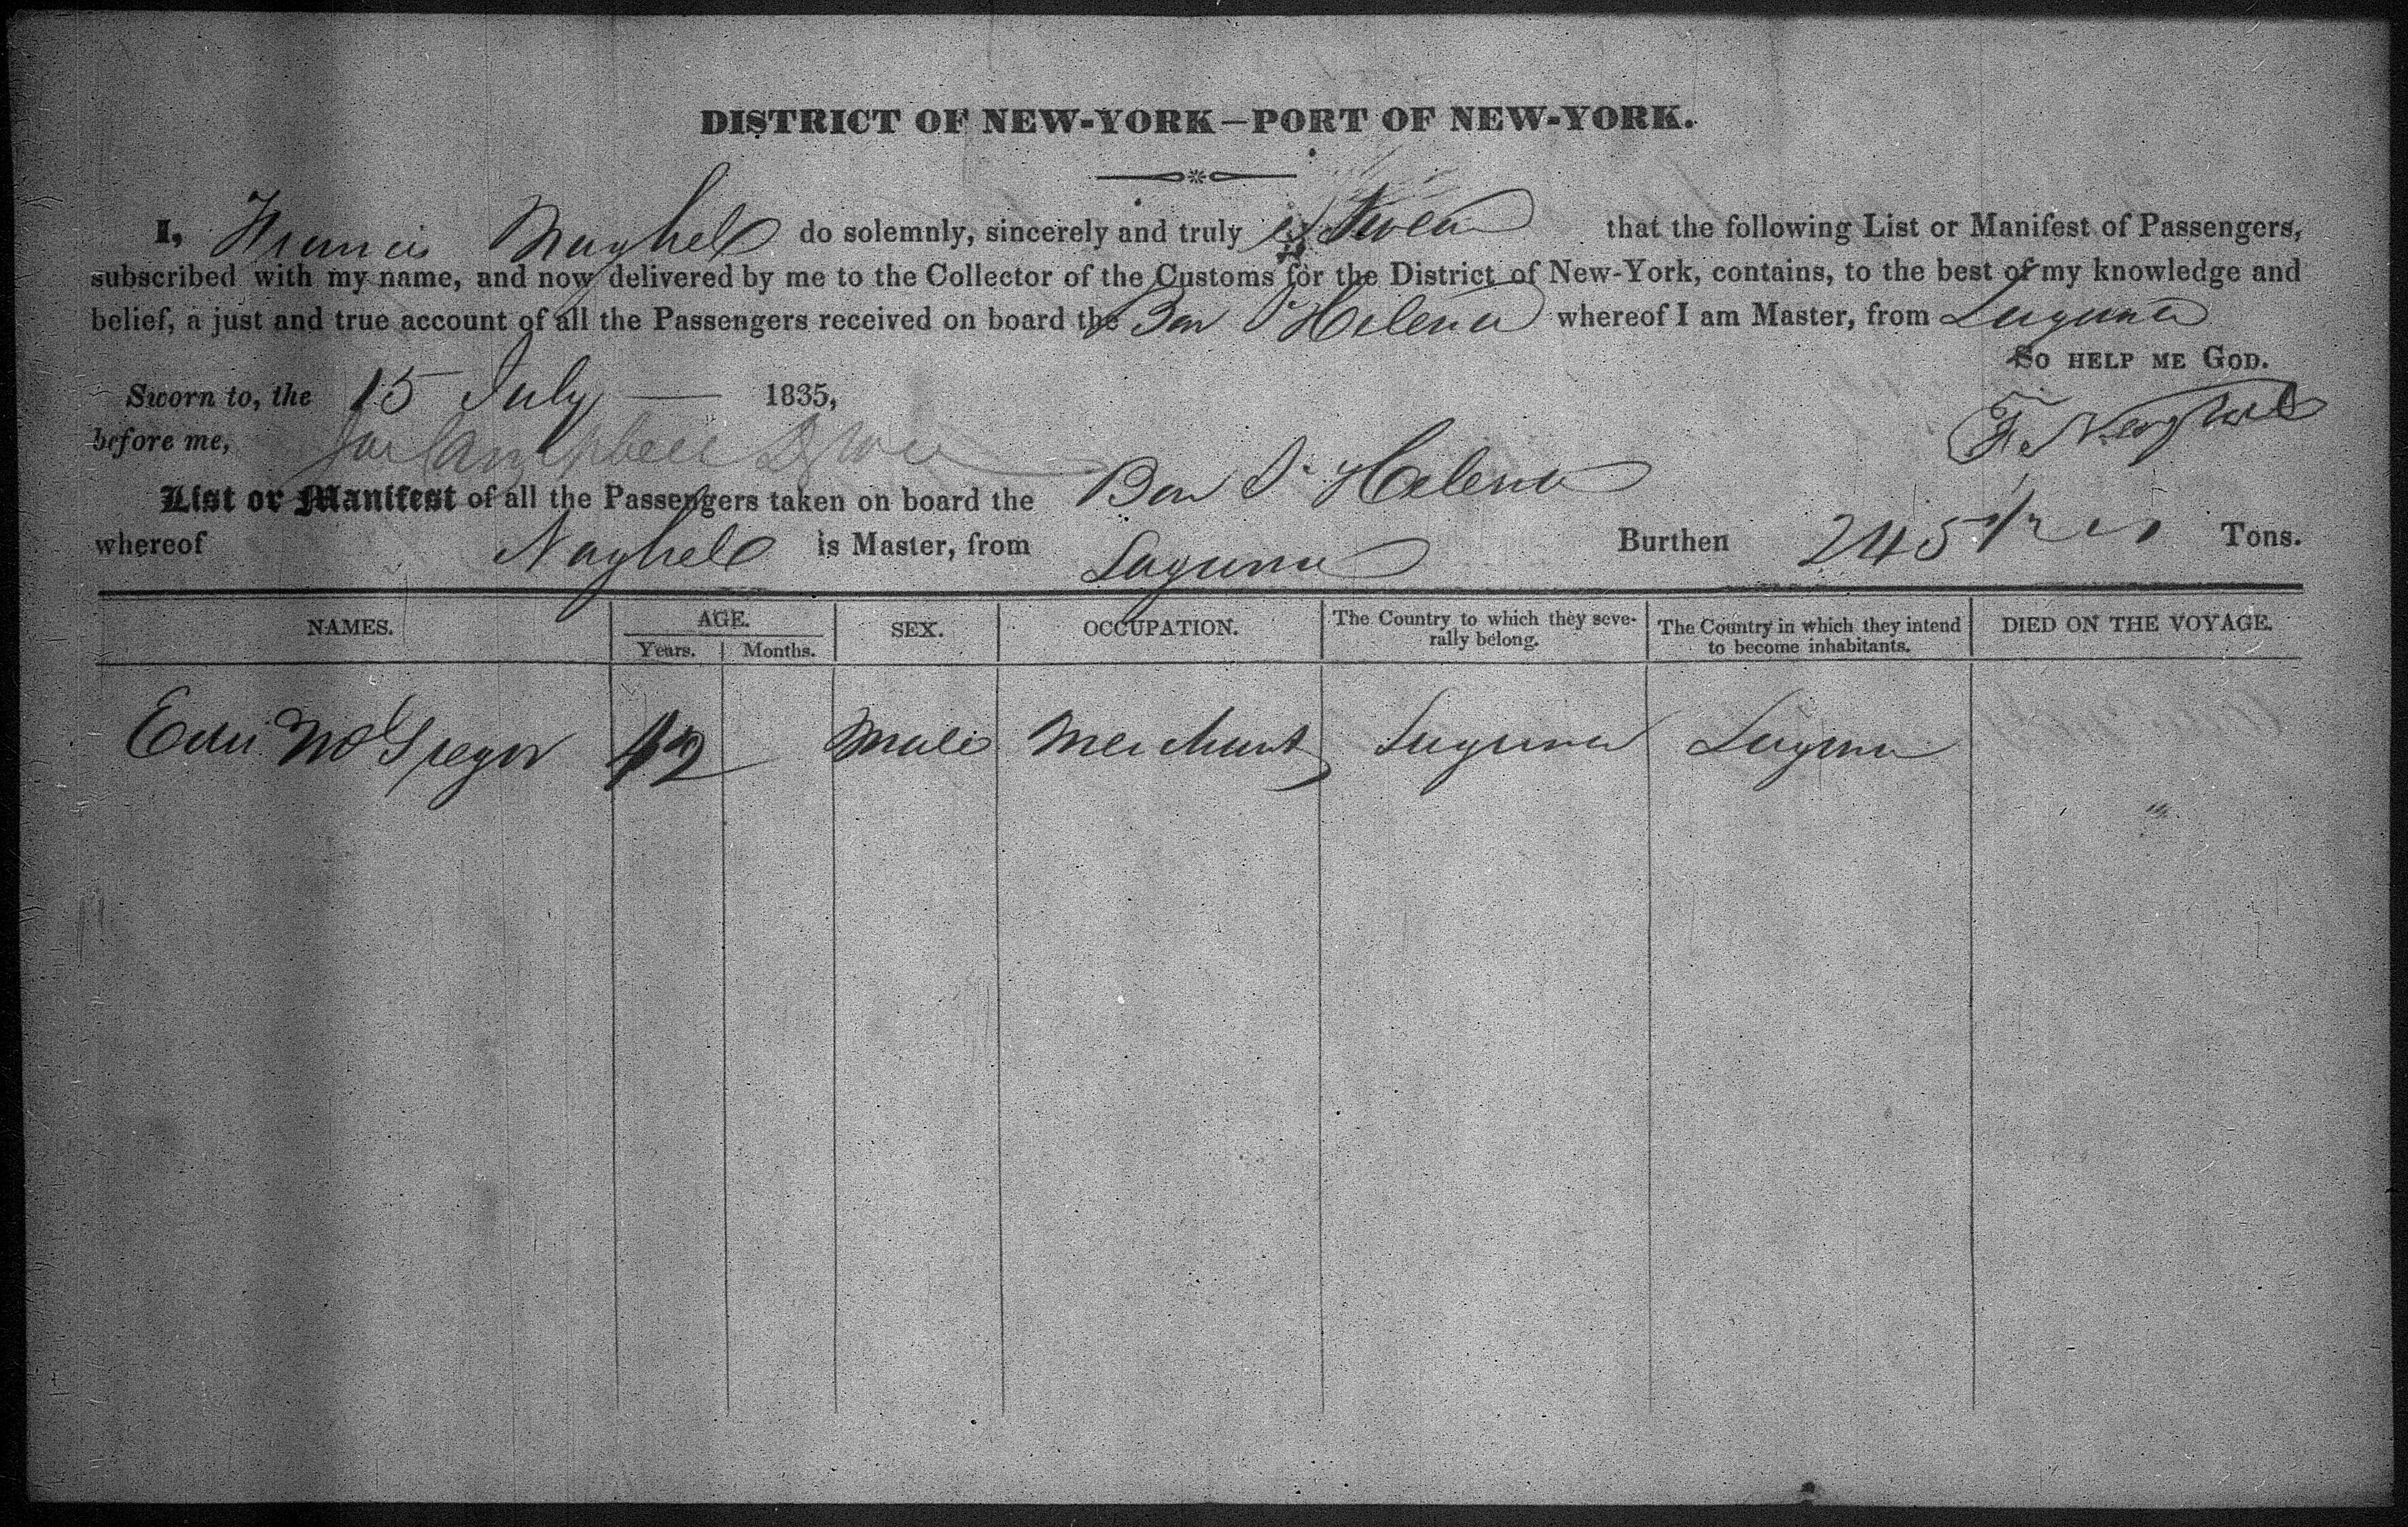 DISTRICT OF NEW-YORK—PORT OF NEW-YORK.
I, Francis Naghel do solemnly, sincerely and truly Swear that the following List or Manifest of Passengers,
subscribed with my name, and now delivered by me to the Collector of the Customs for the District of New-York, contains, to the best of my knowledge and
belief, a just and true account of all the Passengers received on board the Bar St Helena whereof I am Master, from Laguna
SO HELP ME GOD.
Sworn to, the 15 July — 1835,
before me, Campbell
F. Naghel
List or Manifest of all the Passengers taken on board the Bar St Helena
whereof Naghel is Master, from Laguna Burthen 245 Tons.
NAMES. AGE. SEX. OCCUPATION. The Country to which they severally belong. The Country in which they intend to become inhabitants. DIED ON THE VOYAGE.
Years. Months.
McGregor 42 Male Merchant Laguna Laguna